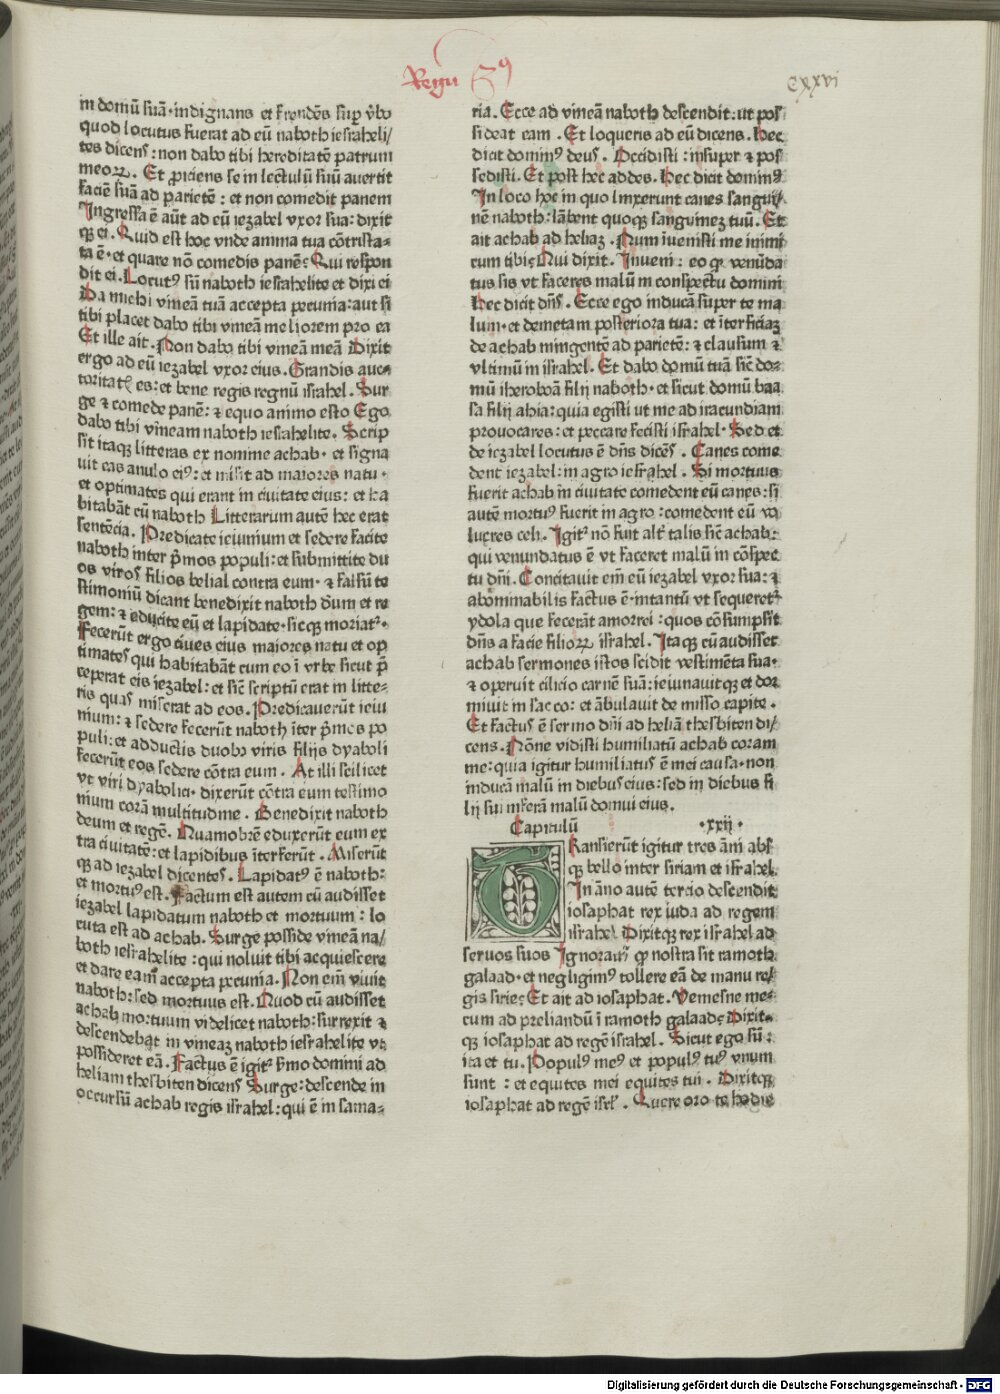 Regu 3⁹
cxxvi
in domū suā·indignans et frendēs sup v̄bo
quod locutus fuerat ad eū naboth iesraheli/
tes dicens:non dabo tibi hereditatē patrum
meoꝝ. Et ꝓiciens se in lectulū suū auertit
faciē suā ad parietē: et non comedit panem
Ingressa ē aūt ad eū iezabel vxor sua: dixit
qꝫ ei. Quid est hoc vnde anima tua cōtrista-
ta ē·et quare nō comedis panē? Qui respon
dit ei. Locutꝰ sū naboth iesrahelite et dixi ei
Da michi vineā tuā accepta pecunia:aut si
tibi placet dabo tibi vineā meliorem pro ea
Et ille ait. Non dabo tibi vineā meā Dixit
ergo ad eū iezabel vxor eius. Grandis auc-
toritatꝭ es:et bene regis regnū israhel. Sur
ge ⁊ comede panē: ⁊ equo animo esto Ego
dabo tibi vineam naboth iesrahelite. Scrip
sit itaqꝫ litteras ex nomine achab· et signa
uit eas anulo eiꝰ: et misit ad maiores natu·
et optimates qui erant in ciuitate eius: et ha
bitabāt cū naboth Litterarum autē hec erat
sentēcia. Predicate ieiunium et sedere facite
naboth inter p̄mos populi: et submittite du
os viros filios belial contra eum· ⁊ falsū te
stimoniū dicant benedixit naboth dūm et re
gem: ⁊ educite eū et lapidate·sicqꝫ moriatᷣ·
Fecerūt ergo ciues eius maiores natu et op
timates qui habitabāt cum eo ī vrbe sicut p̄
ceperat eis iezabel: et sic̄ scriptū erat in litte-
ris quas miserat ad eos. Predicauerūt ieiu
nium: ⁊ sedere fecerūt naboth īter p̄mos po
puli:et adductis duobꝰ viris filijs dyaboli
fecerūt eos sedere cōtra eum. At illi scilicet
vt viri dyabolici· dixerūt cōtra eum testimo
nium corā multitudine. Benedixit naboth
deum et regē. Quamobrē eduxerūt eum ex
tra ciuitatē: et lapidibus īterferūt. Miserūt
qꝫ ad iezabel dicentes. Lapidatꝰ ē naboth:
et mortuꝰ est. Factum est autem cū audisset
iezabel lapidatum naboth et mortuum: lo
cuta est ad achab. Surge posside vineā na/
both iesrahelite: qui noluit tibi acquiescere
et dare eam accepta pecunia. Non em̄ viuit
naboth:sed mortuus est. Quod cū audisset
achab mortuum videlicet naboth:surrexit ⁊
descendebat in vineaꝫ naboth iesrahelite vt
possideret eā. Factus ē igitᷣ ṽmo domini ad
heliam thesbiten dicens Surge:descende in
occursū achab regis israhel:qui ē in sama-
ria. Ecce ad vineā naboth descendit:ut pos
sideat eam. Et loqueris ad eū dicens. Hec
dicit dominꝰ deus. Occidisti:insuper ⁊ pos
sedisti. Et post hec addes. Hec dicit dominꝰ
In loco hoc in quo linxerunt canes sangui/
nē naboth:lābent quoqꝫ sanguineꝫ tuū. Et
ait achab ad heliaꝫ. Num īuenisti me inimi
cum tibi? Qui dixit. Inueni: eo qꝫ venūda
tus sis vt faceres malū in conspectu domini
Hec dicit dn̄s. Ecce ego inducā super te ma
lum·et demetam posteriora tua: et īterficiaꝫ
de achab mingentē ad parietē: ⁊ clausum ⁊
vltimū in israhel. Et dabo domū tuā sic̄ do-
mū iheroboā filij naboth·et sicut domū baa
sa filij ahia:quia egisti ut me ad iracundiam
prouocares:et peccare fecisti israhel·Sed et
de iezabel locutus ē dn̄s dicēs. Canes come
dent iezabel:in agro iesrahel. Si mortuus
fuerit achab in ciuitate comedent eū canes:si
autē mortuꝰ fuerit in agro:comedent eū vo
lucres celi. Igitᷣ nō fuit altᷣ talis sic̄ achab:
qui venundatus ē vt faceret malū in cōspec
tu dn̄i. Concitauit em̄ eū iezabel vxor sua: ⁊
abominabilis factus ē·intantū vt sequeretᷣ
ydola que fecerāt amorrei:quos cōsumpsit
dn̄s a facie filioꝝ israhel. Itaqꝫ cū audisset
achab sermones istos scidit vestimēta sua·
⁊ operuit cilicio carnē suā:ieiunauitqꝫ et dor
miuit in sacco: et ābulauit demisso capite.
Et factus ē sermo dn̄i ad heliā thesbiten di/
cens. Nōne vidisti humiliatū achab coram
me:quia igitur humiliatus ē mei causa·non
inducā malū in diebus eius:sed in diebus fi
lij sui inferā malū domui eius.
Capitulū ·xxij·
TRansierūt igitur tres āni abs
qꝫ bello inter siriam et israhel.
In āno autē tercio descendit
iosaphat rex iuda ad regem
israhel Dixitqꝫ rex israhel ad
seruos suos Ignoratis qꝫ nostra sit ramoth
galaad·et negligimꝰ tollere eā de manu re/
gis sirie? Et ait ad iosaphat. Veniesne me-
cum ad preliandū ī ramoth galaad? Dixit-
qꝫ iosaphat ad regē israhel. Sicut ego sū:
ita et tu. Populꝰ meꝰ et populꝰ tuꝰ vnum
sunt: et equites mei equites tui. Dixitqꝫ
iosaphat ad regē isrl̄. Quere oro te hodie
Digitalisierung gefördert durch die Deutsche Forschungsgemeinschaft · DFG